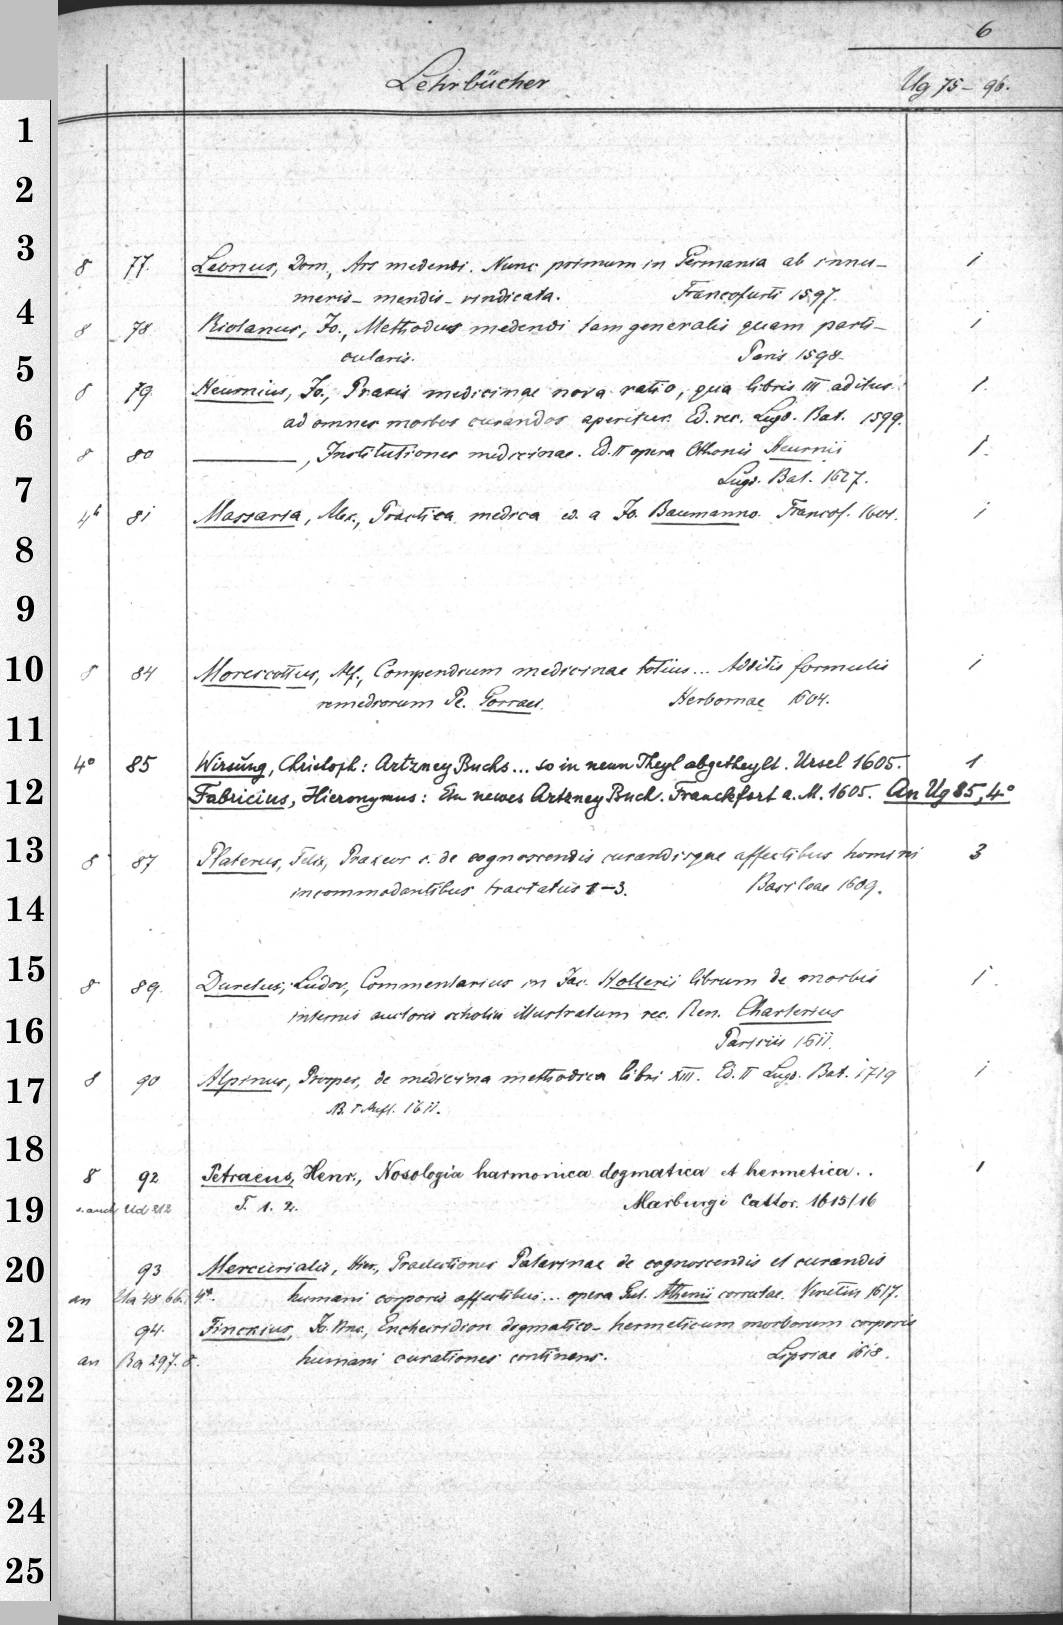 6
Lehrbücher Ug 75-96.
1
2
3
8 77. Leonus, Dom., Ars medendi. Nunc primum in Germania ab innu- 1
4 meris-mendis-vindicata. Francofurti 1597.
8 78 Riolanus, Jo., Methodus medendi tam generalis quam parti- 1
5 cularis. Paris 1598
8 79 Heurnius, Jo., Praxis medicinae nova ratio, qua libris III aditus 1.
6 ad omnes morbos curandos aperitur. Ed. rec. Lugd. Bat. 1599.
8 80 ———, Institutiones medicinae. Ed. II opera Othonis Heurnii 1.
7 Lugd. Bat. 1627.
81 Massaria, Alex., Practica medica ed. a Jo. Baumanno. Francof. 1601. 1
8
9
10 8 84 Morescottus, Alf., Compendium medicinae totius... Additis formulis 1
remediorum Pe. Gorraei. Herbornae 1604.
11
4° 85 Wirsung, Christoph: Artzney Buchs... so in neun Theyl abgetheylt. Ursel 1605. 1
12 Fabricius, Hieronymus: Ein newes Artzney Buch. Franckfort a. M. 1605. An Ug 85, 4°
13 8 87 Platerus, Felix, Praxeos s. de cognoscendis curandisque affectibus homini 3
14 incommodantibus tractatus 1-3. Basileae 1609.
15 8 89. Duretus, Ludov., Commentarius in Jac. Hollerii librum de morbis 1.
16 internis auctoris scholiis illustratum rec. Ren. Charterius
Parisiis 1611.
17 8 90 Alpinus, Prosper, de medicina methodica libri XIII. Ed. II Lugd. Bat. 1719 1
Aufl. 1611.
18
8 92 Petraeus, Henr., Nosologia harmonica dogmatica et hermetica.. 1
19 s. auch Ud 212 T. 1. 2. Marburgi Cattor. 1615/16
20 93 Mercurialis, Hier., Praelectiones Patavinae de cognoscendis et curandis
an Ua 48 bb. 4°. humani corporis affectibus... opera Gul. Athenii correctae. Venetiis 1617.
21 94. Finckius, Jo. Vinc., Encheiridion dogmatico-hermeticum morborum corporis
an Ba 297. 8. humani curationes continens. Lipsiae 1618.
22
23
24
25